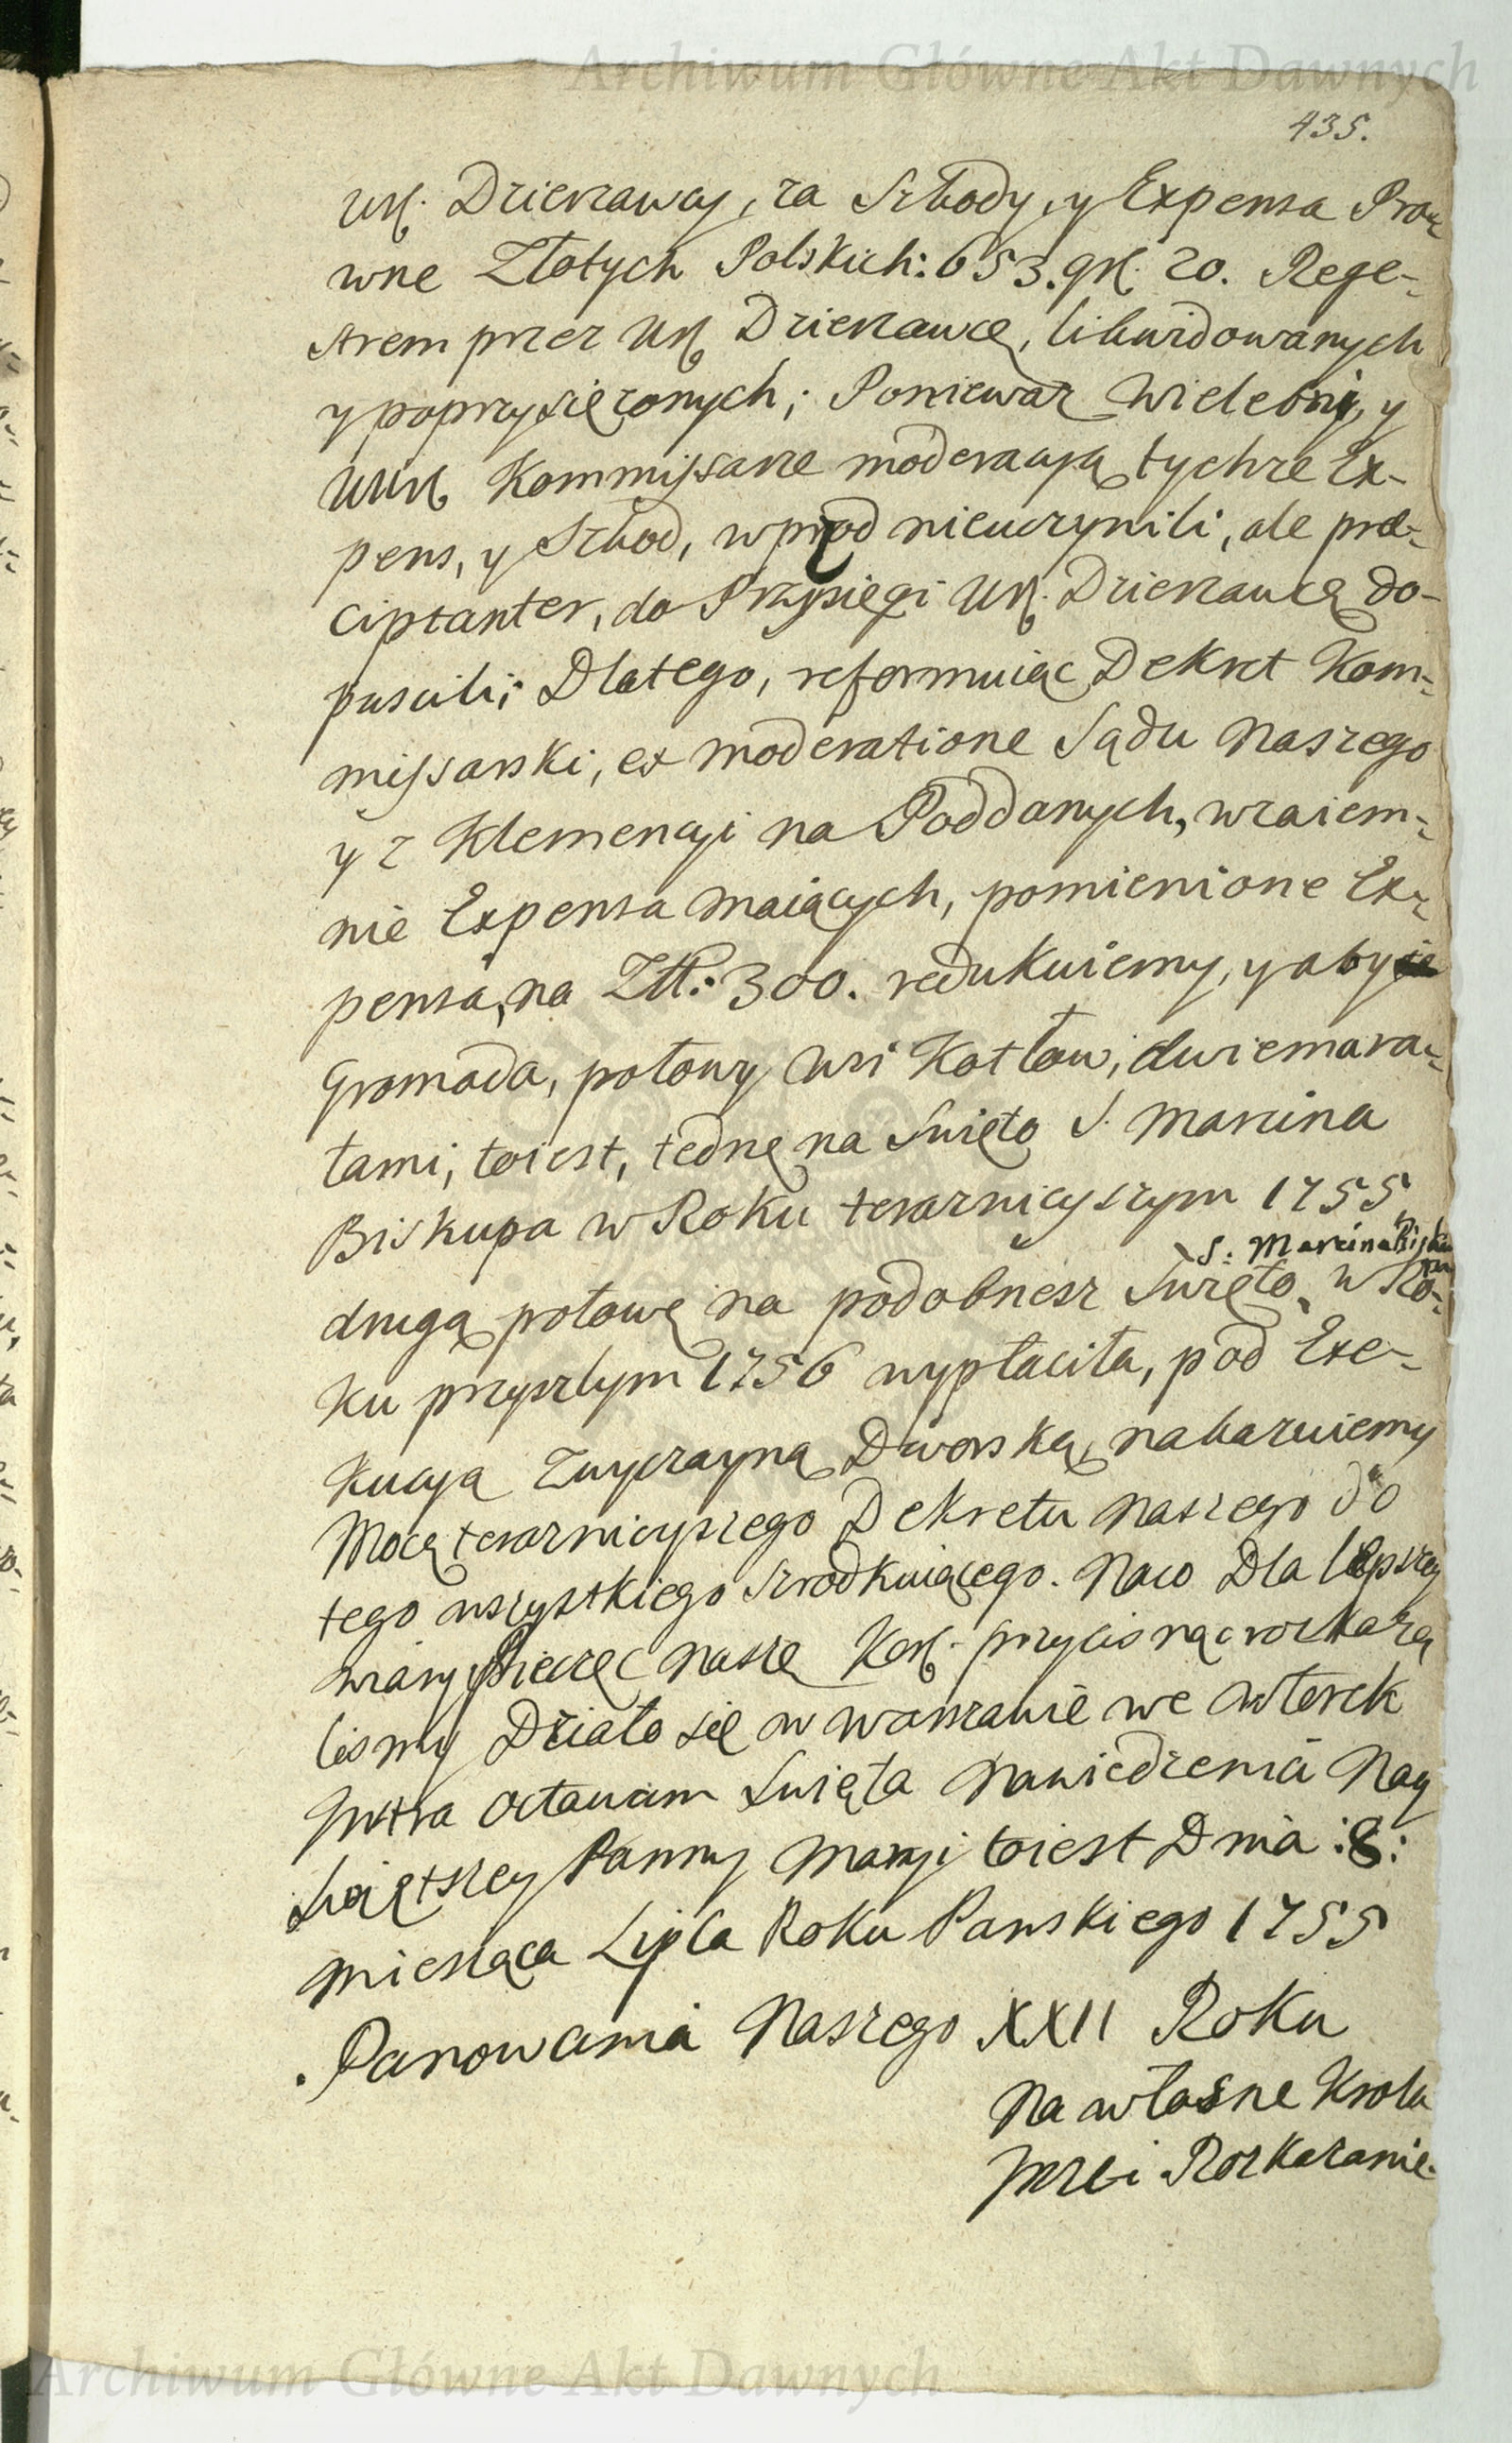 Archiwum Główne Akt Dawnych
435.
Url. Dzierzawcy, za Szkody, y Expensa Pra-
wne Złotych Polskich: 653. gr. 20. Rege-
strem przez Url. Dzierzawcę, likwidowanych
y poprzysiężonych; Poniewaz Wielebni, y
UUrl. Kommissarze moderacyą tychze Ex-
pens, y Szkod, wprzod nieuczynili, ale præ-
ciptanter, do Przysięgi Url. Dzierzawcę do-
puscili; Dlatego, reformuiąc Dekret Kom-
missarski, ex moderatione Sądu Naszego
y z Klemencyi na Poddanych, wzaiem-
nie Expensa maiących, pomienione Ex-
pensa, na Złł: 300. redukuiemy, y aby je
Gromada, połowy Wsi Kotłow, dwiema ra-
tami, toiest, iedną na Swięto S. Marcina
Biskupa w Roku teraznieyszym 1755
drugą połowę na podobnesz Swięto S: Marcina Biskupa w Ro-
ku przyszłym 1756 wypłaciła, pod Exe-
kucyą zwyczayną Dworską, nakazuiemy
Mocą teraznieyszego Dekretu Naszego do
tego wszystkiego srzodkuiącego. Naco Dla lepszey
wiary Pieczęć Naszą Kor. przycisnąc rozkaza
lismy Działo się w Warszawie we Wtorek
Intra Octavam Swięta Nawiedzenia Nay
Swiętszey Panny Maryi toiest Dnia :8:
Miesiąca Lipca Roku Panskiego 1755
Panowania Naszego XXII Roku
Na własne Krola
Jmści Rozkazanie.
Archiwum Główne Akt Dawnych